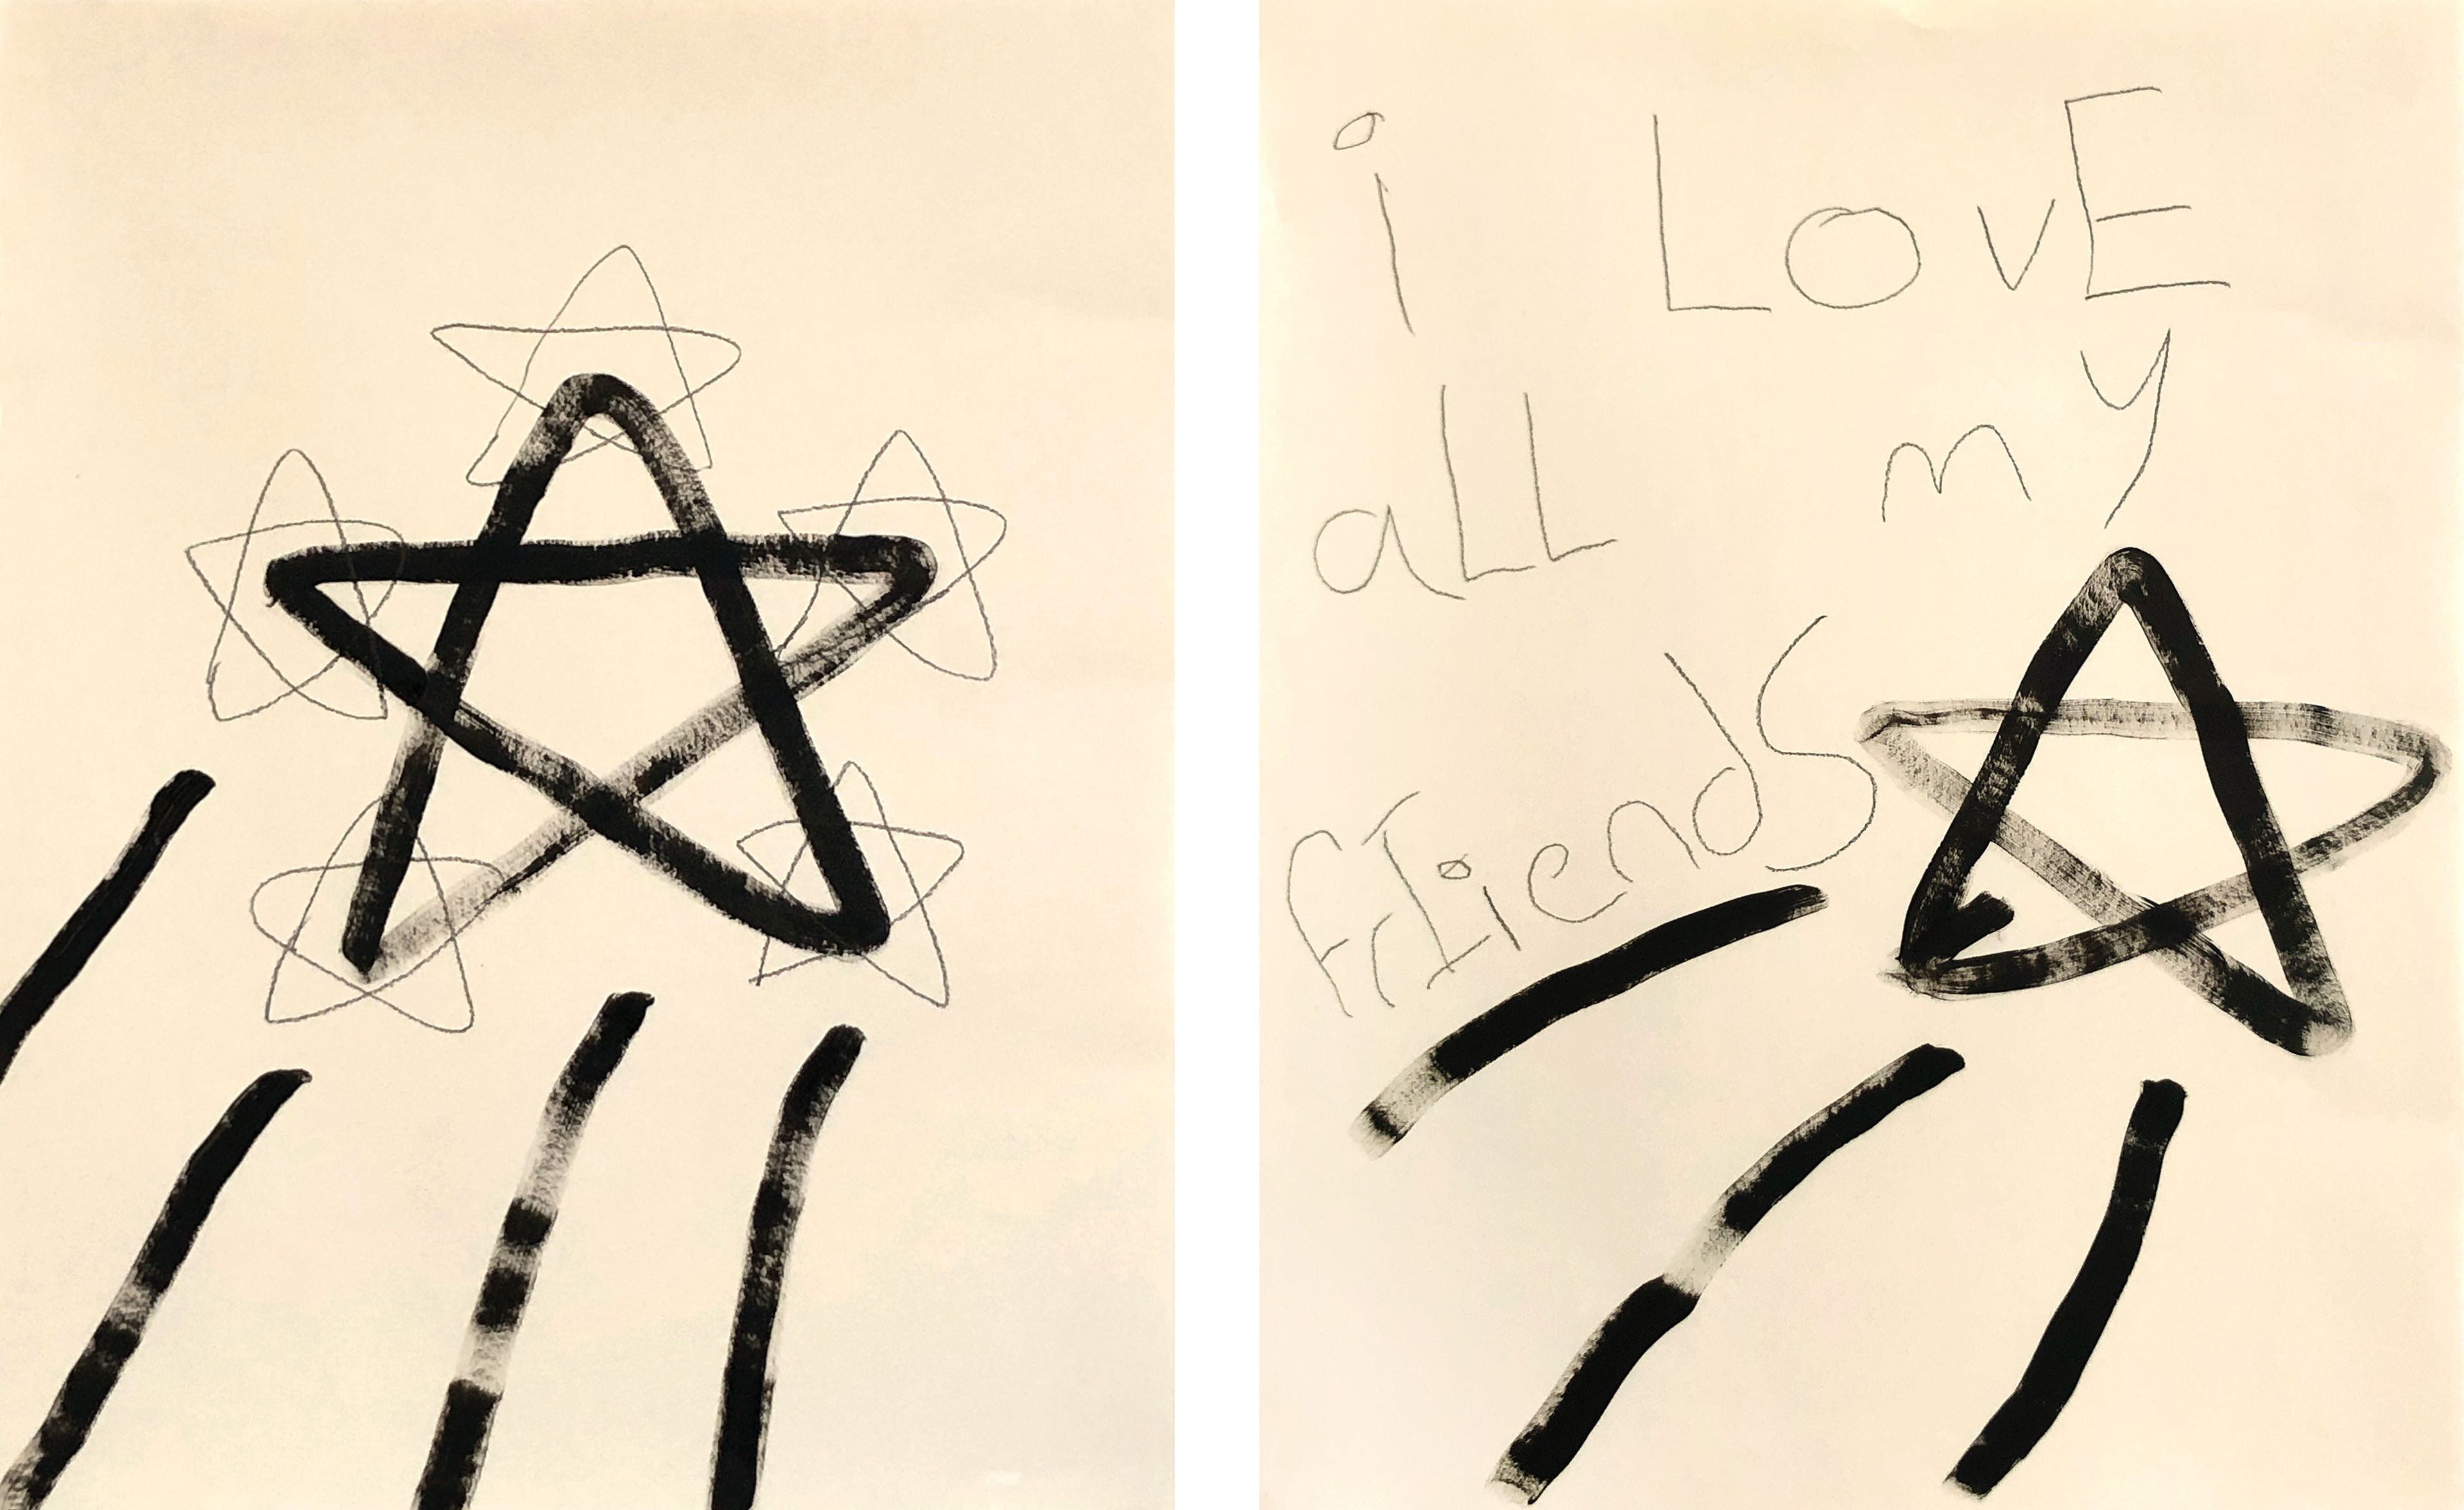 i LovE
aLL my
frIiendS